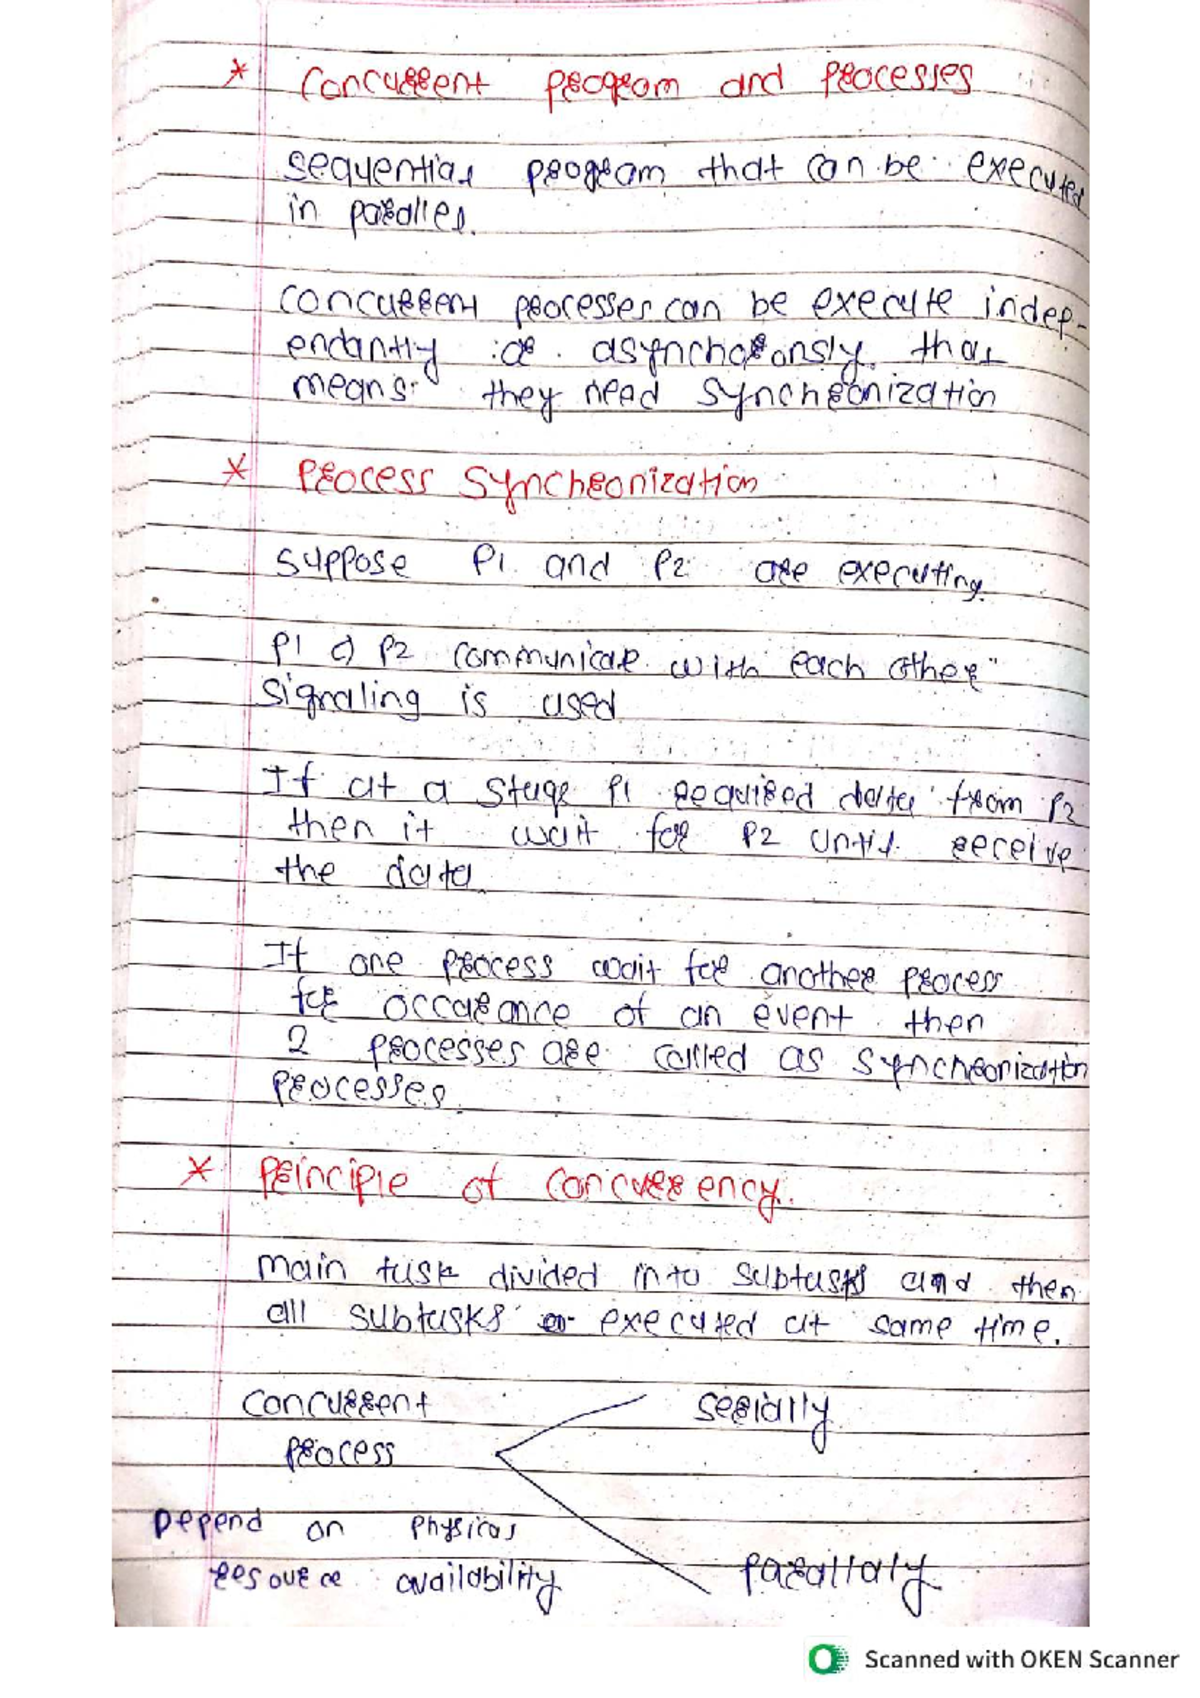 * Concurrent program and processes
sequential program that can be executed
in parallel.
concurrent processes can be execute indep-
endantly or asynchoronsly that
means they need synchronization
* Process Synchronization
suppose P1 and P2 are executing.
P1 & P2 communicate with each other
signaling is used
If at a stage P1 required data from P2
then it wait for P2 until receive
the data.
If one process wait for another process
for occarance of an event then
2 processes are called as synchronization
processes.
* Principle of concurrency.
main task divided into subtasks and then
all subtasks executed at same time.
concurrent serially
process
Depend on physical
resource availability parallaly
Scanned with OKEN Scanner